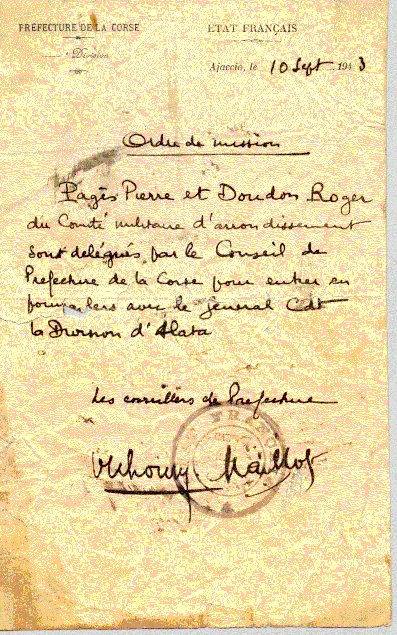 PRÉFECTURE DE LA CORSE
Division
ETAT FRANÇAIS
Ajaccio, le 10 Sept 1943
Ordre de mission
Pagès Pierre et Doudon Roger
du Comité militaire d'arrondissement
sont délégués par le Conseil de
Prefecture de la Corse pour entrer en
pourparlers avec le general Cdt
la Division d'Alata
Les conseillers de Prefecture
Maillot